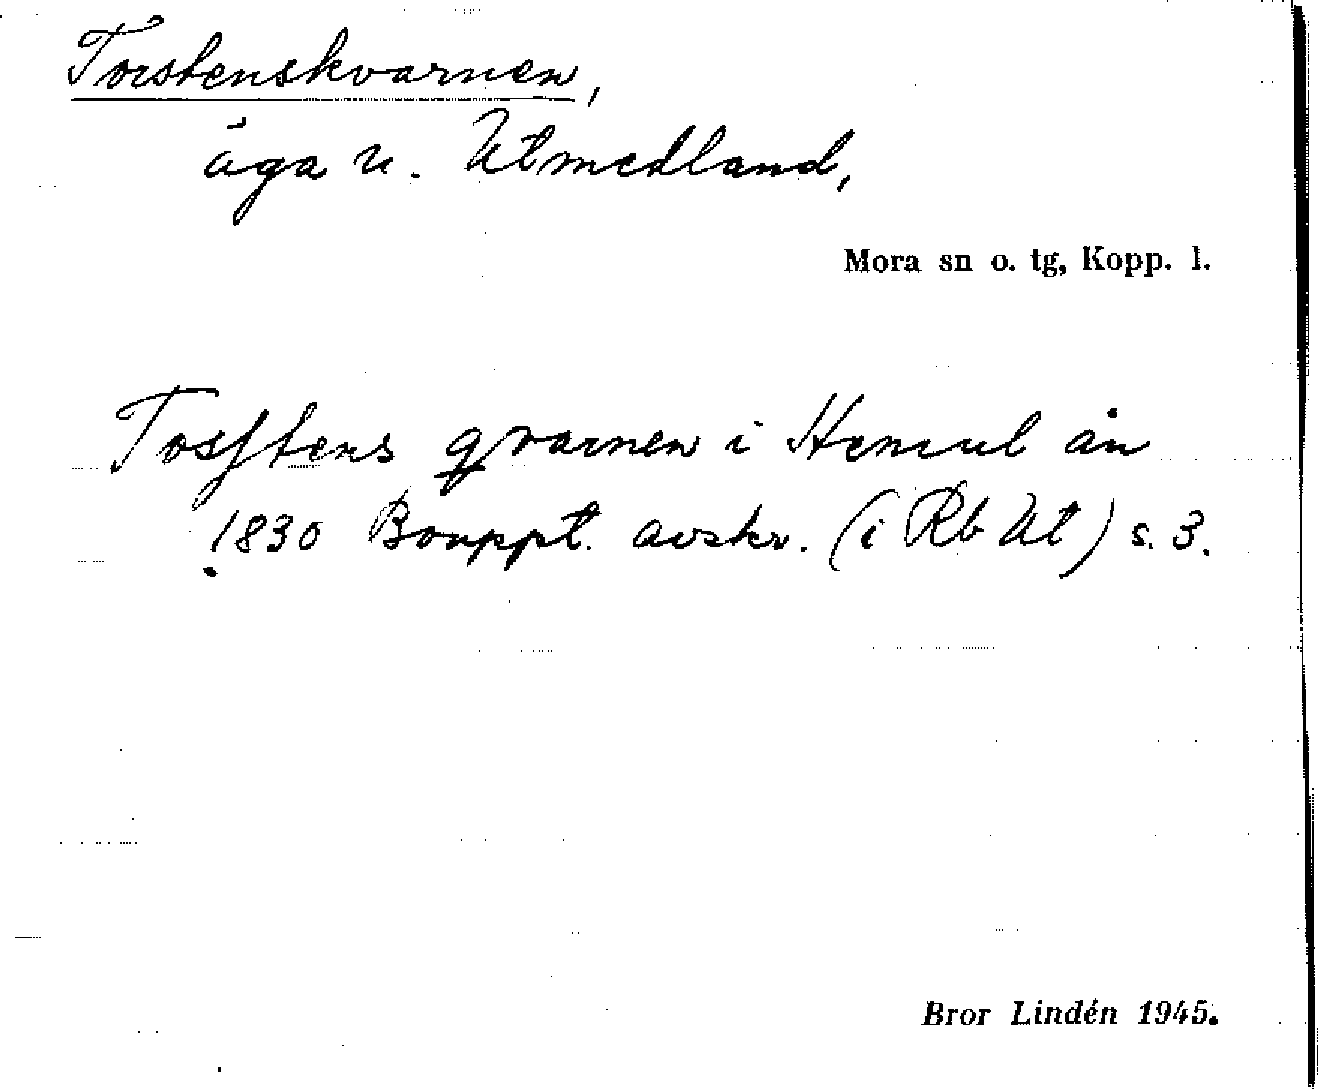 Torstenskvarnen,
äga u. Utmedland,
Mora sn o. tg, Kopp. l.
Tosstens qvarnen i Hemul ån
1830 Bouppt. avskr. (i Rb Ut) s. 3.
Bror Lindén 1945.